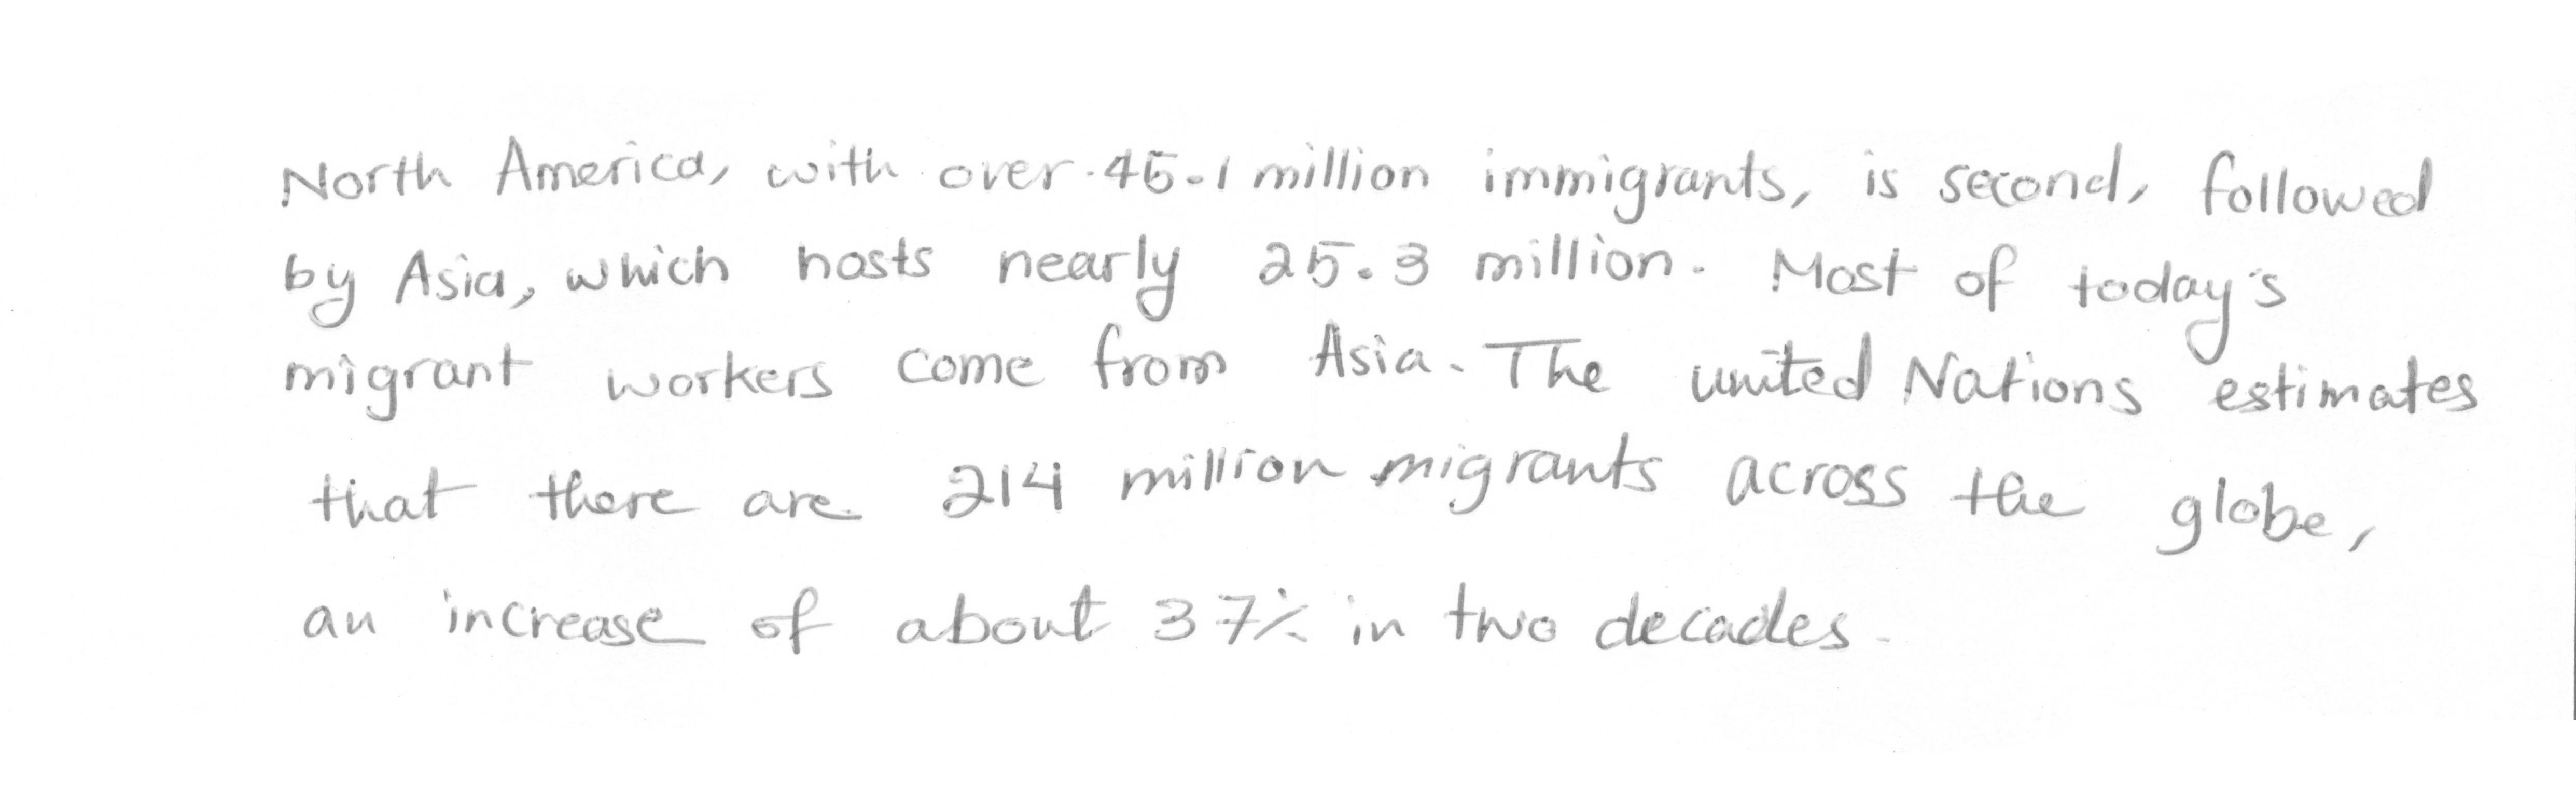 North America, with over 45.1 million immigrants, is second, followed
by Asia, which hosts nearly 25.3 million. Most of today's
migrant workers come from Asia. The united Nations estimates
that there are 214 million migrants across the globe,
an increase of about 37% in two decades.